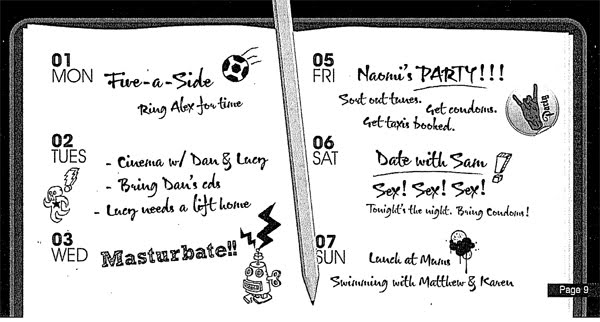 01
MON
Five-a-Side
Ring Alex for time
02
TUES
- Cinema w/ Dan & Lucy
- Bring Dan's cds
- Lucy needs a lift home
03
WED
Masturbate!!
05
FRI
Naomi's PARTY!!!
Sort out tunes.
Get condoms.
Get taxis booked.
Party
06
SAT
Date with Sam!
Sex! Sex! Sex!
Tonight's the night. Bring Condom!
07
SUN
Lunch at Mums
Swimming with Matthew & Karen
Page 9